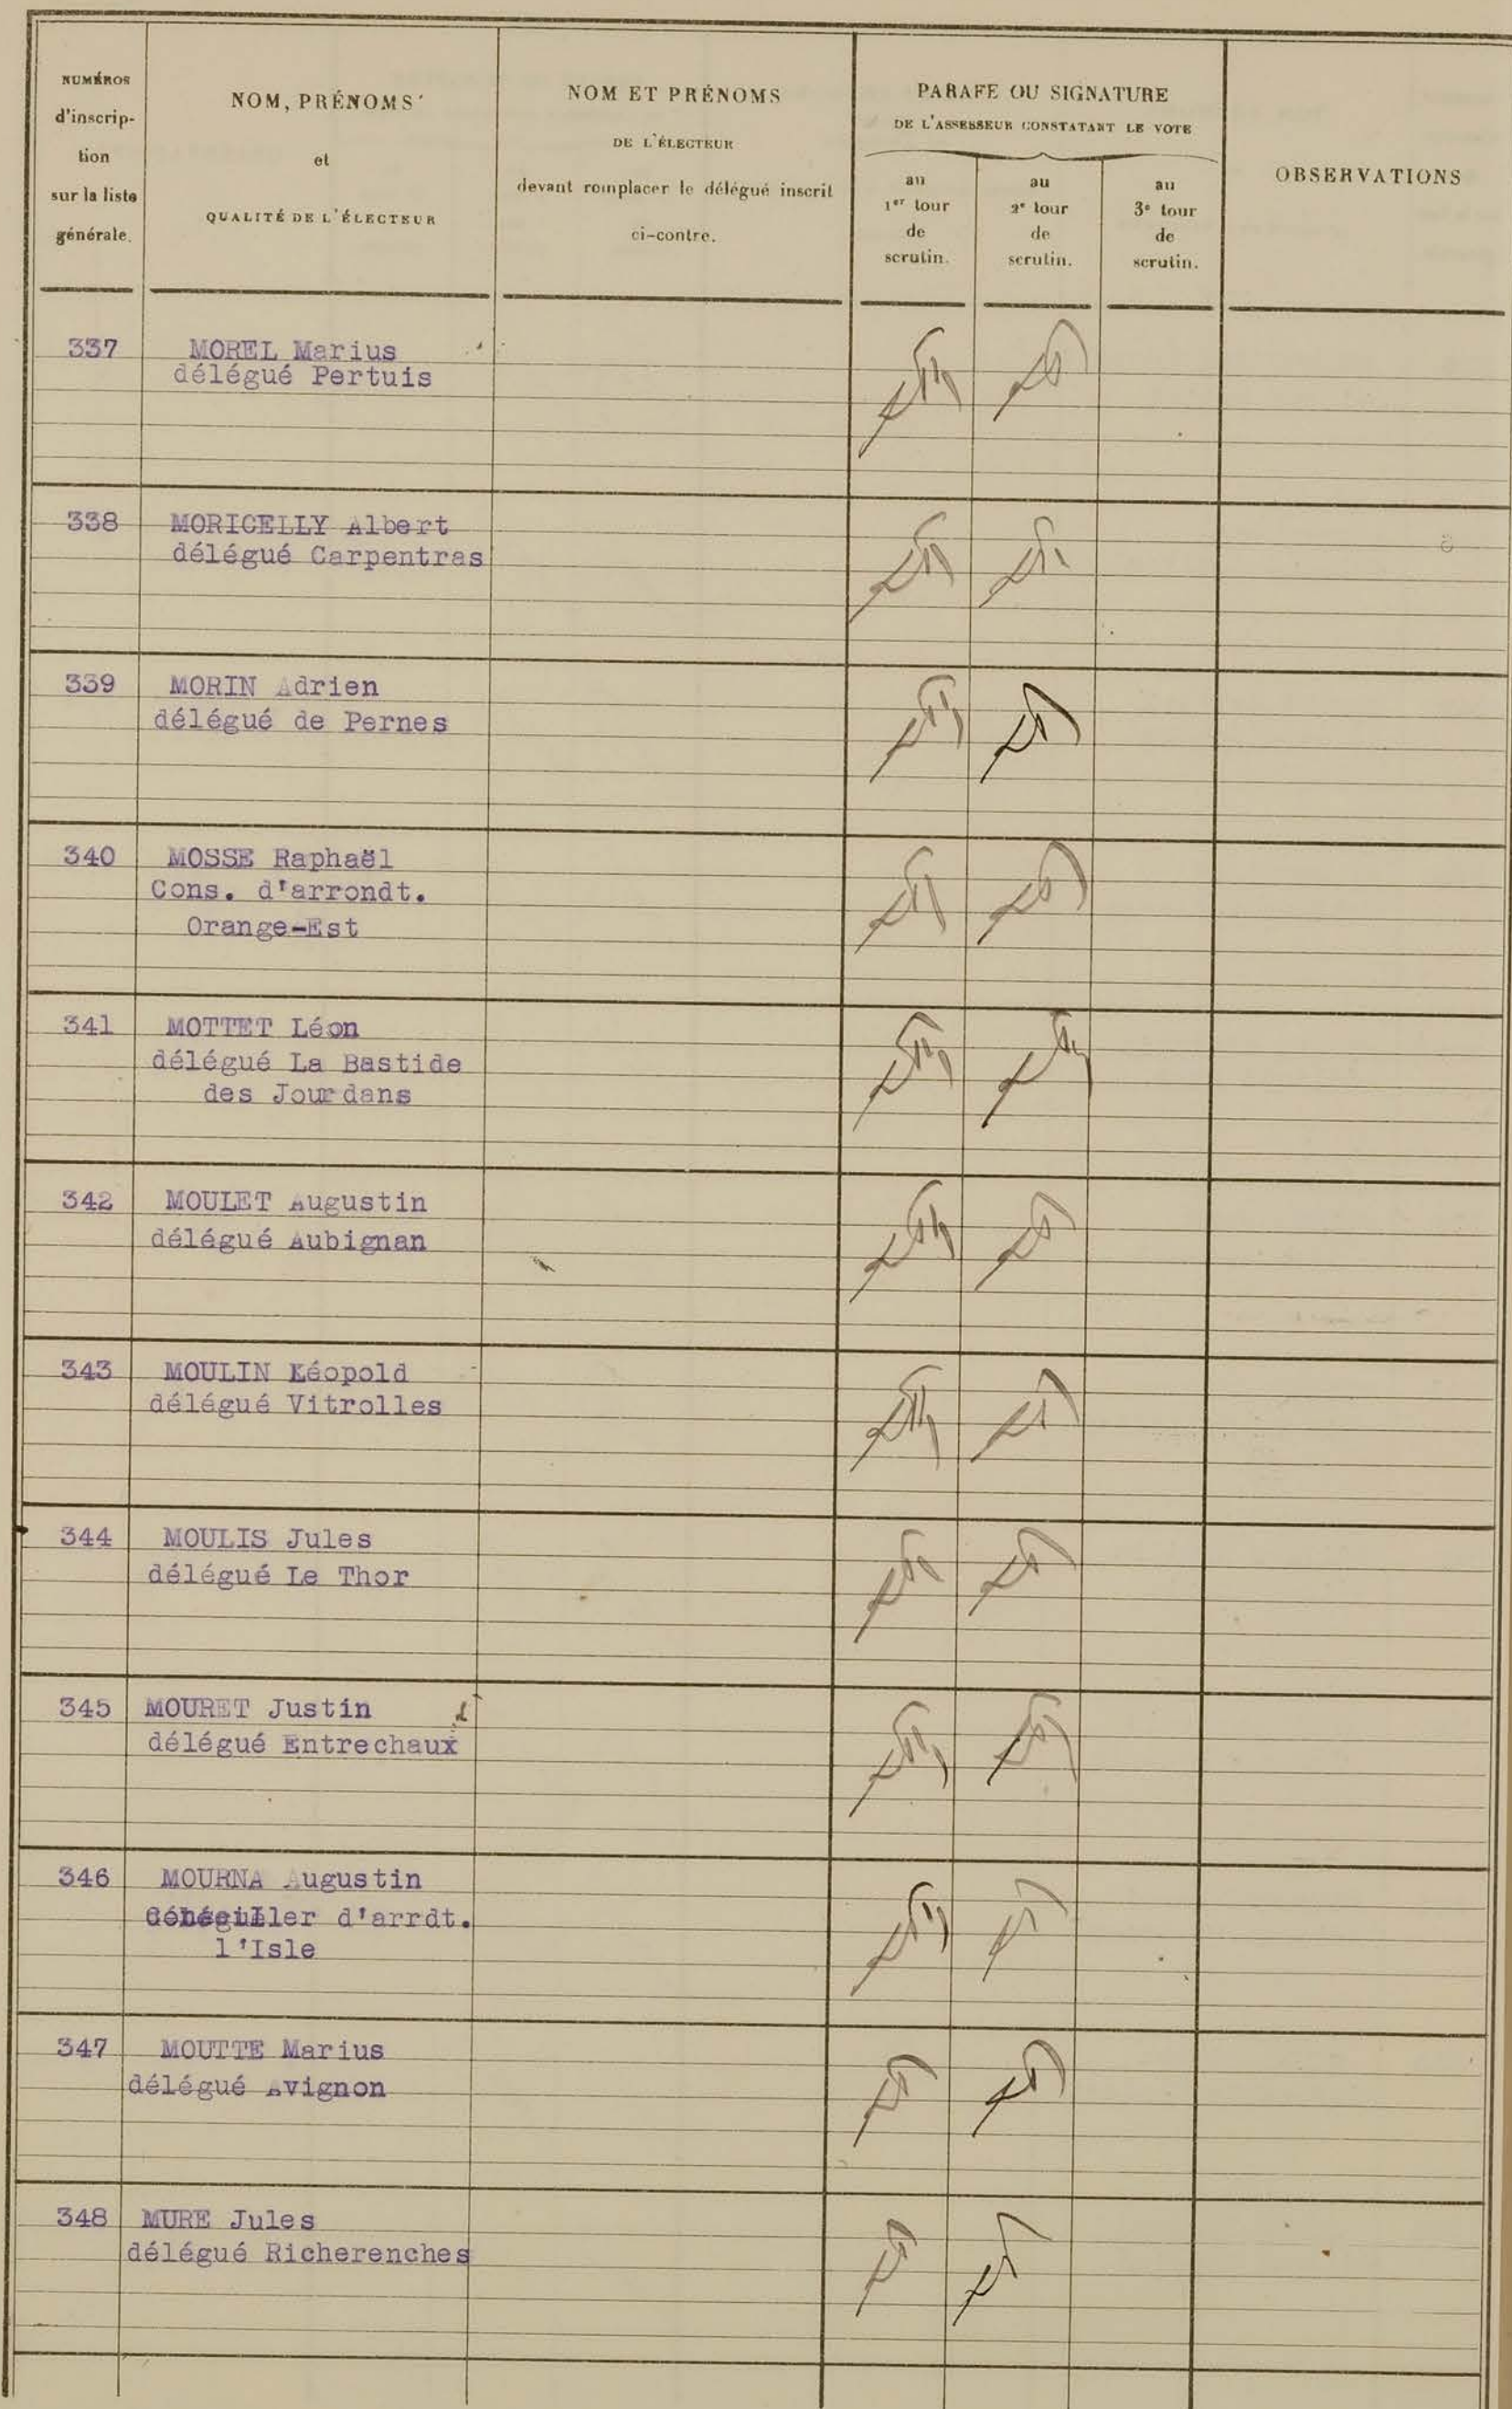 NUMÉROS
d'inscrip-
tion
sur la liste
générale.
NOM, PRÉNOMS
et
QUALITÉ DE L'ÉLECTEUR
NOM ET PRÉNOMS
DE L'ÉLECTEUR
devant remplacer le délégué inscrit
ci-contre.
PARAFE OU SIGNATURE
DE L'ASSESSEUR CONSTATANT LE VOTE
au
1er tour
de
scrutin.
au
2e tour
de
scrutin.
au
3e tour
de
scrutin.
OBSERVATIONS
337 MOREL Marius
délégué Pertuis
338 MORICELLY Albert
délégué Carpentras
339 MORIN Adrien
délégué de Pernes
340 MOSSE Raphaël
Cons. d'arrondt.
Orange-Est
341 MOTTET Léon
délégué La Bastide
des Jourdans
342 MOULET Augustin
délégué Aubignan
343 MOULIN Léopold
délégué Vitrolles
344 MOULIS Jules
délégué Le Thor
345 MOURET Justin
délégué Entrechaux
346 MOURNA Augustin
Conseiller d'arrdt.
l'Isle
347 MOUTTE Marius
délégué Avignon
348 MURE Jules
délégué Richerenches